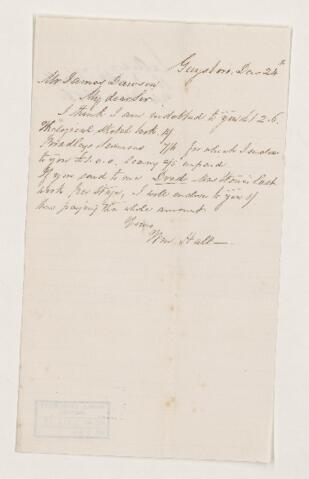 Guysboro, Dec 24th
Mr James Dawson
My dear Sir
I think I am indebted to you £1.2.6.
Theological Sketch book
Bradleys Sermons 7/6 for which I enclose
to you £1.0.0, leaving 2/6 unpaid
If you send to me Dred Mrs Stowe's last
work per Stage, I will endeavor to
paying the whole amount
Yours
Wm Hall